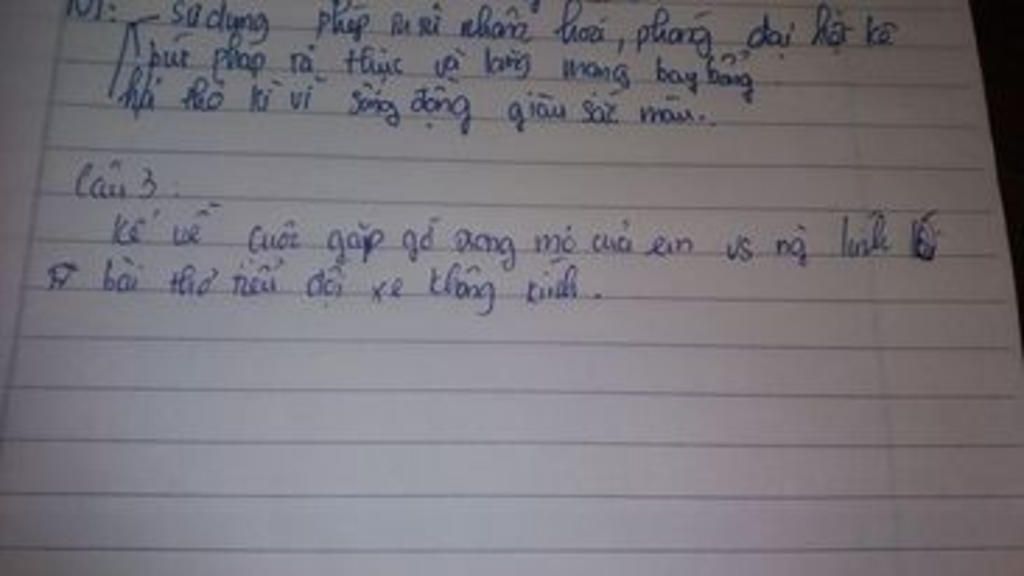 NT: - Sử dụng phép tu từ nhân hoá, phóng đại liệt kê
bút pháp tả thực và lãng mạng bay bổng
hả thơ kì vĩ sống động giàu sắc màu..
Câu 3:
Kể về cuộc gặp gỡ trong mơ của em vs ng lính lái
bài thơ tiểu đội xe không kính.